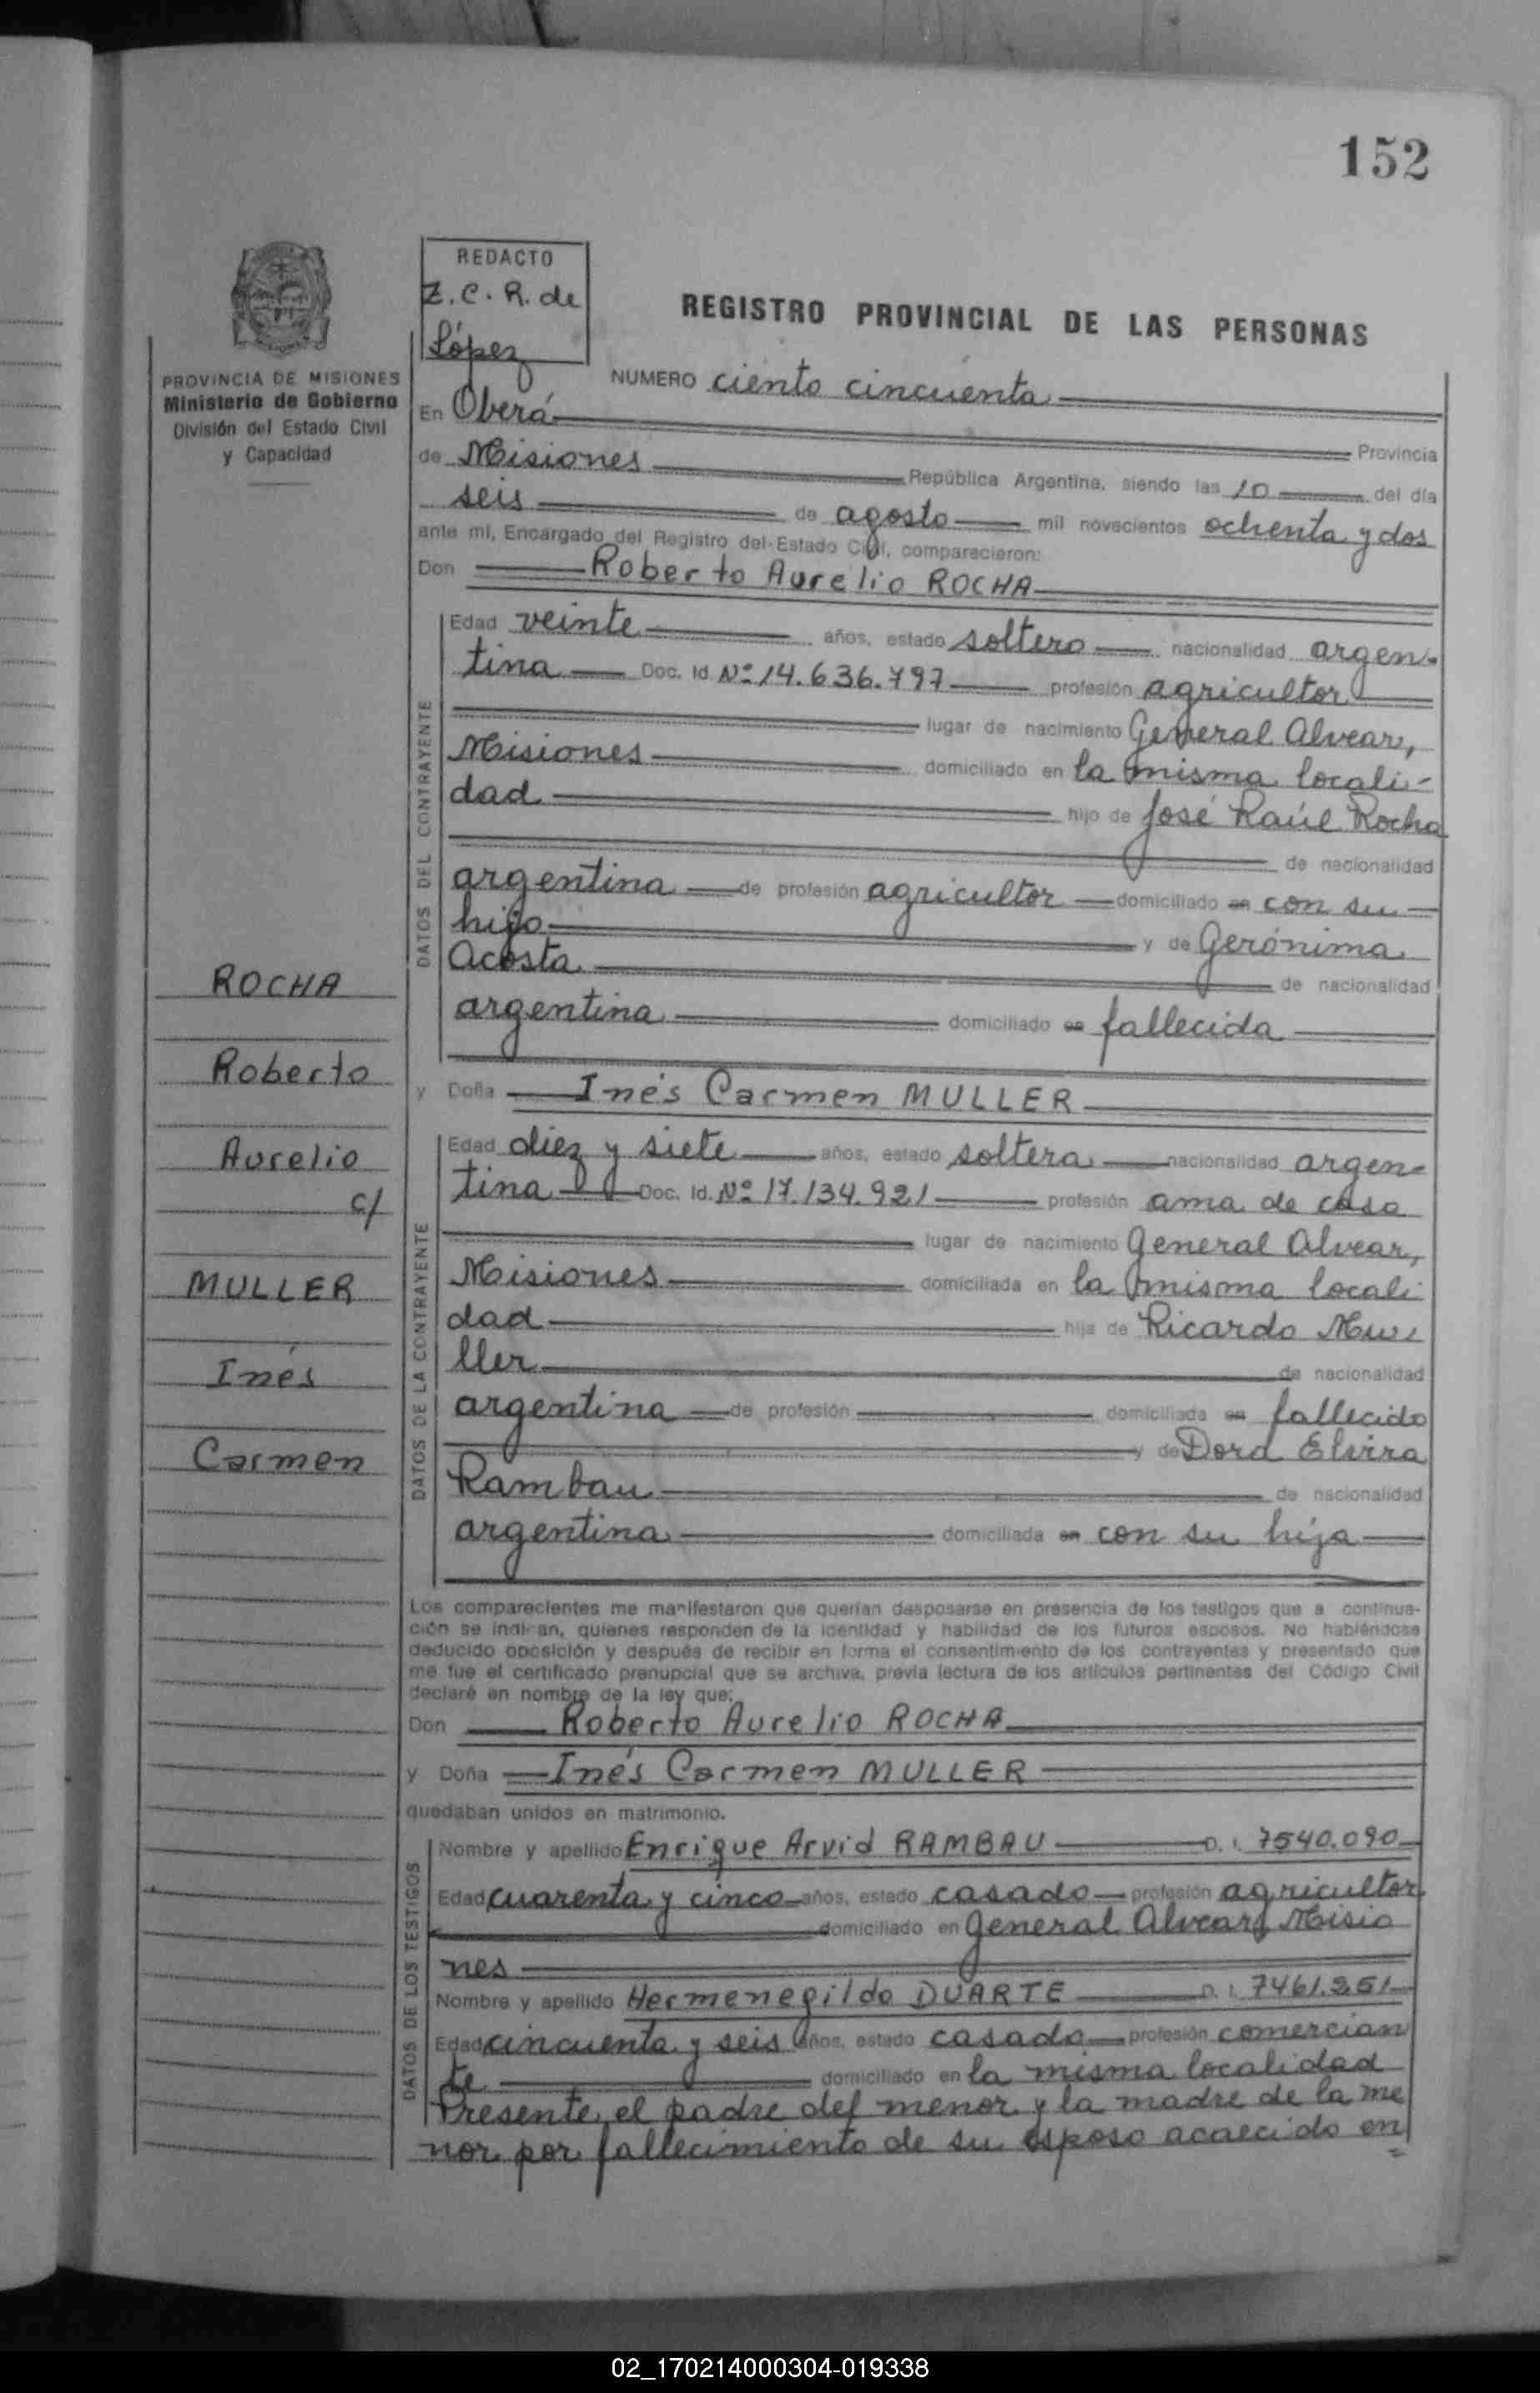 152
REDACTO
Z. C. R. de
López
REGISTRO PROVINCIAL DE LAS PERSONAS
PROVINCIA DE MISIONES
Ministerio de Gobierno
División del Estado Civil
y Capacidad
NUMERO ciento cincuenta
En Oberá Provincia
de Misiones República Argentina, siendo las 10 del día
seis de agosto mil novecientos ochenta y dos
ante mí, Encargado del Registro del Estado Civil, comparecieron:
Don Roberto Aurelio ROCHA
DATOS DEL CONTRAYENTE
Edad veinte años, estado soltero nacionalidad argen-
tina Doc. Id. Nº 14.636.797 profesión agricultor
lugar de nacimiento General Alvear,
Misiones domiciliado en la misma locali-
dad hijo de José Raúl Rocha
de nacionalidad
argentina de profesión agricultor domiciliado en con su
hijo y de Gerónima
Acosta de nacionalidad
argentina domiciliado en fallecida
y Doña Inés Carmen MULLER
DATOS DE LA CONTRAYENTE
Edad diez y siete años, estado soltera nacionalidad argen-
tina Doc. Id. Nº 17.134.921 profesión ama de casa
lugar de nacimiento General Alvear,
Misiones domiciliada en la misma locali
dad hija de Ricardo Mu-
ller de nacionalidad
argentina de profesión domiciliada en fallecido
y de Dora Elvira
Rambau de nacionalidad
argentina domiciliada en con su hija
ROCHA
Roberto
Aurelio
c/
MULLER
Inés
Carmen
Los comparecientes me manifestaron que querían desposarse en presencia de los testigos que a continua-
ción se indican, quienes responden de la identidad y habilidad de los futuros esposos. No habiéndose
deducido oposición y después de recibir en forma el consentimiento de los contrayentes y presentado que
me fue el certificado prenupcial que se archiva, previa lectura de los artículos pertinentes del Código Civil
declaré en nombre de la ley que:
Don Roberto Aurelio ROCHA
y Doña Inés Carmen MULLER
quedaban unidos en matrimonio.
DATOS DE LOS TESTIGOS
Nombre y apellido Enrique Arvid RAMBAU D. I. 7540.090
Edad cuarenta y cinco años, estado casado profesión agricultor
domiciliado en General Alvear, Misio
nes
Nombre y apellido Hermenegildo DUARTE D. I. 7461.351
Edad cincuenta y seis años, estado casado profesión comercian
te domiciliado en la misma localidad
Presente el padre del menor y la madre de la me
nor por fallecimiento de su esposo acaecido en
02_170214000304-019338